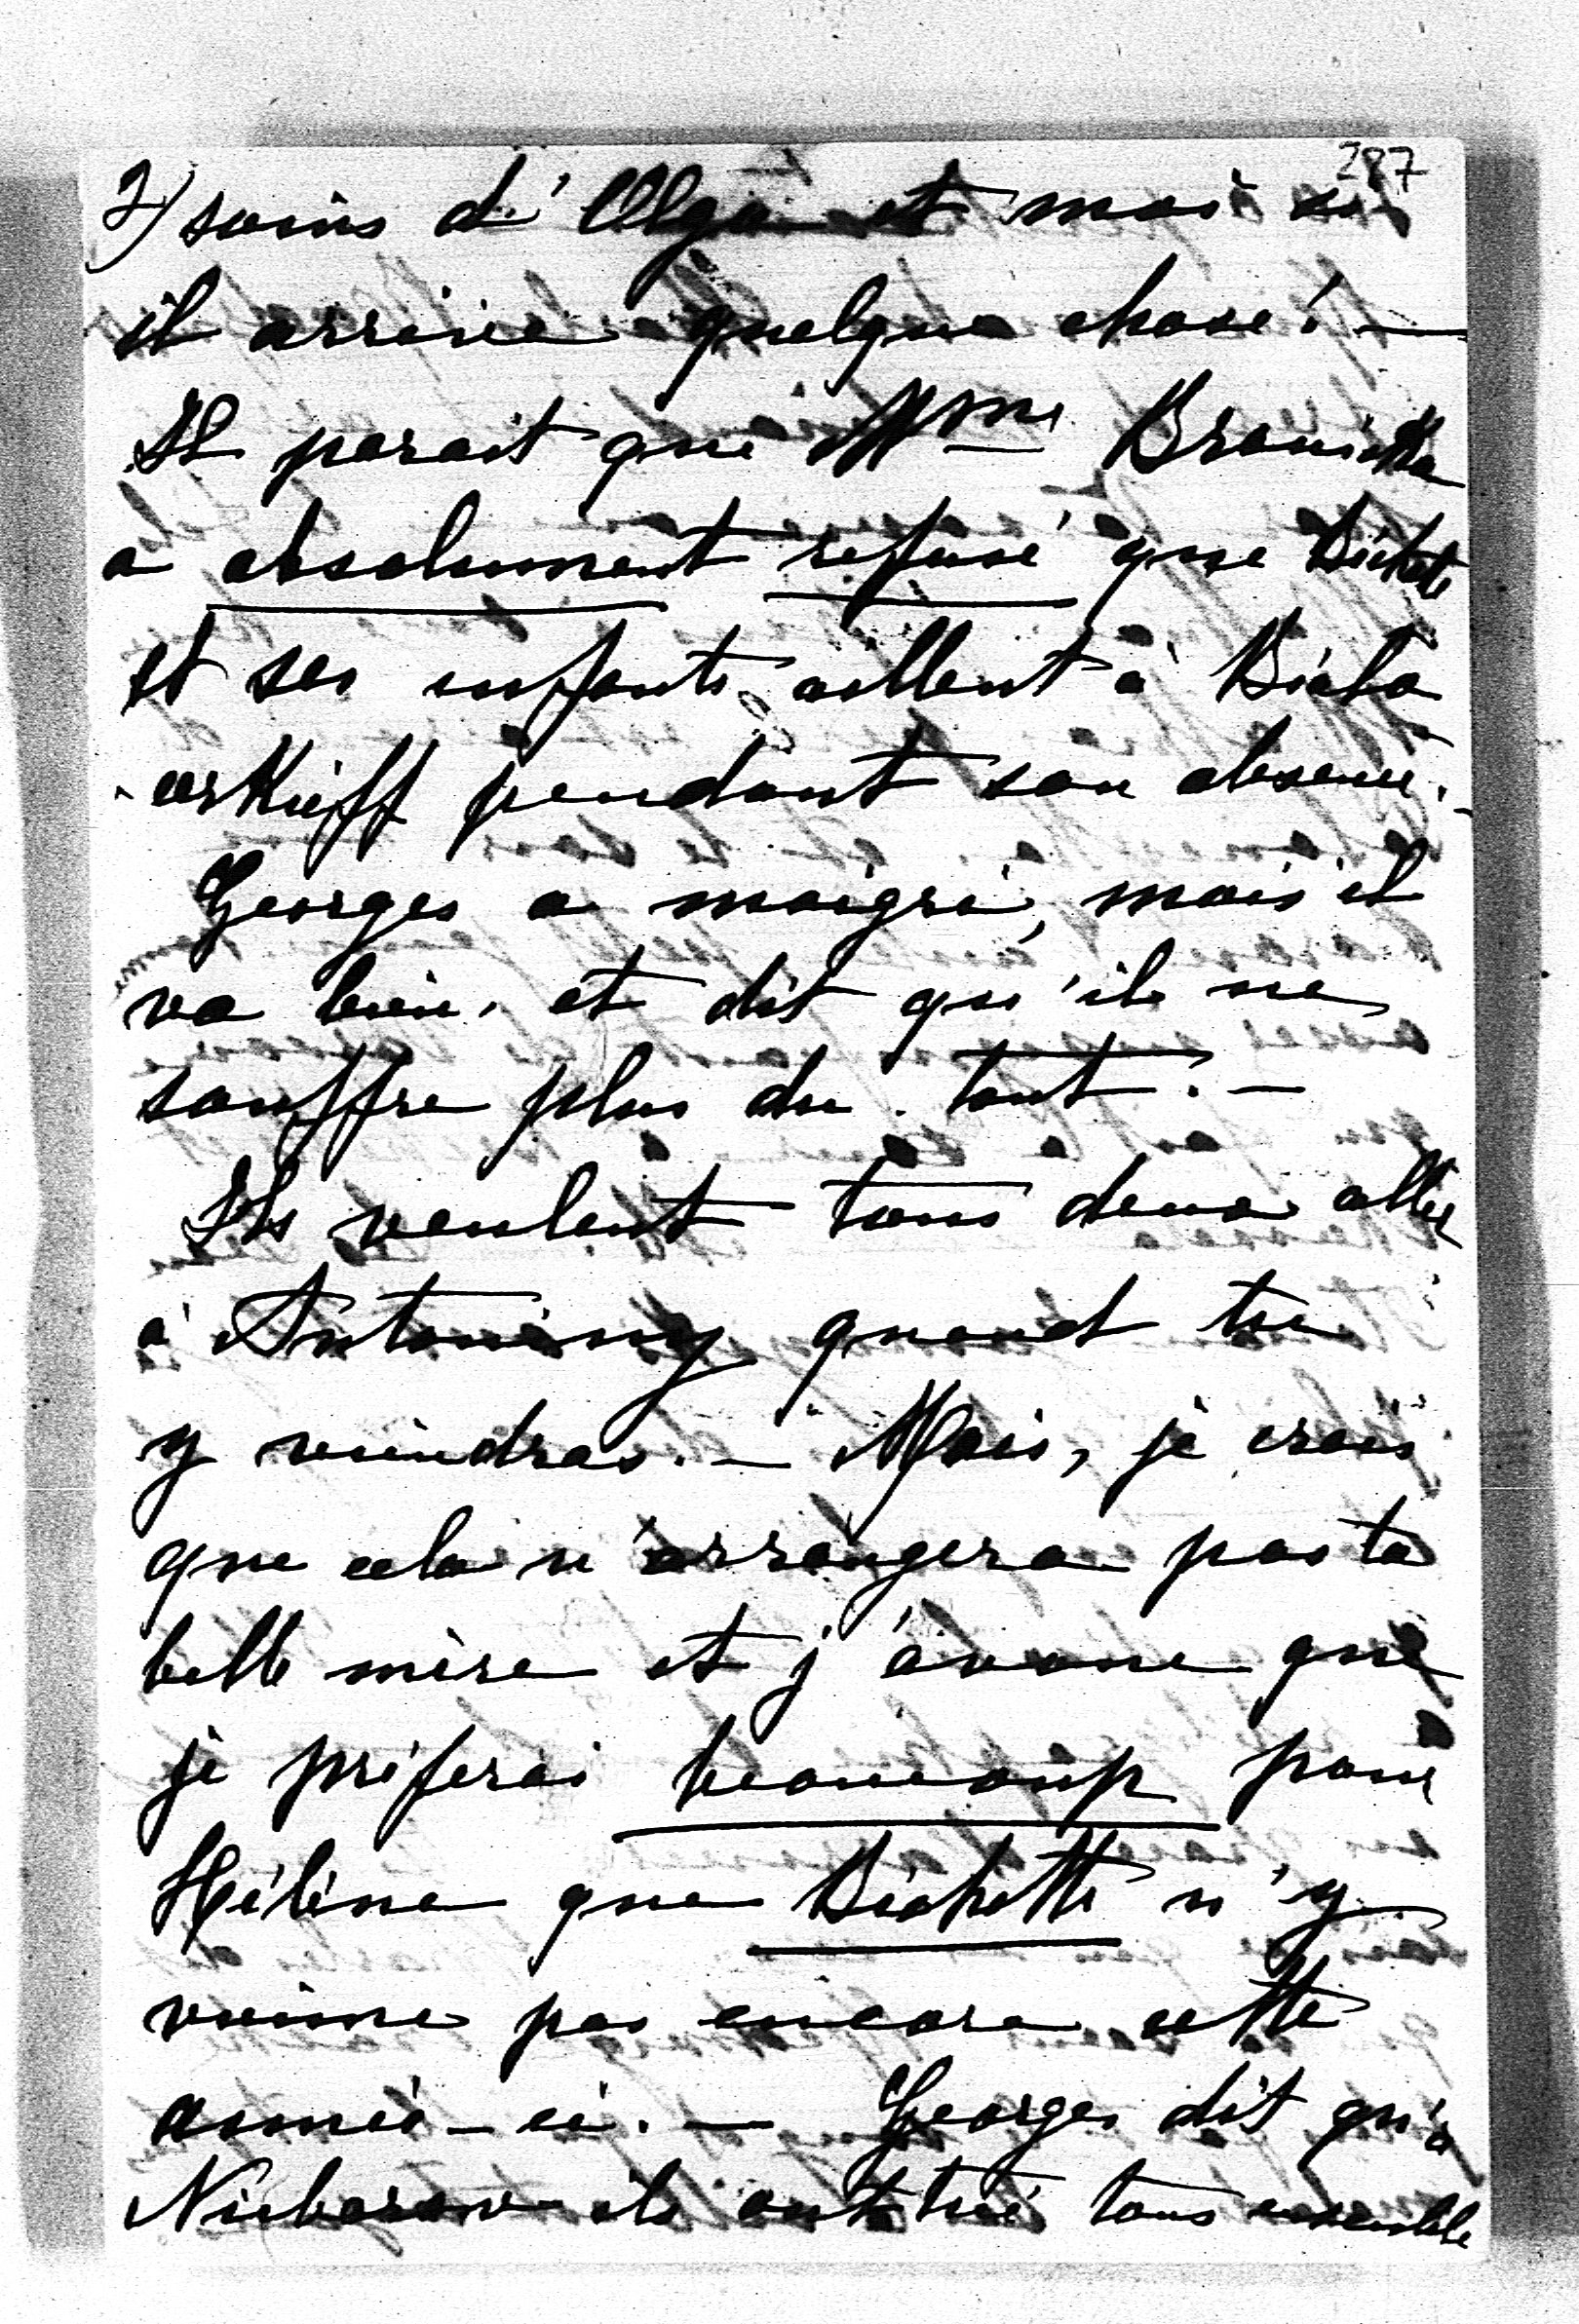 287
2) soins d'Olga et moi si
il arrive quelque chose! —
Il parait que Mme Branicka
a absolument refusé que Bichette
et ses enfants aillent à Biala
cerkieff pendant son absence. -
Georges a maigri, mais il
va bien, et dit qu'il ne
souffre plus du tout. —
Ils veulent tous deux aller
à Antoniny quand tu
y viendras. — Mais, je crois
que cela n'arrangera pas ta
belle mère et j'avoue que
je préferai beaucoup pour
Hélène que Bichette n'y
vienne pas encore cette
année-ci. — Georges dit qu'à
Nieborow ils ont tué tous ensemble